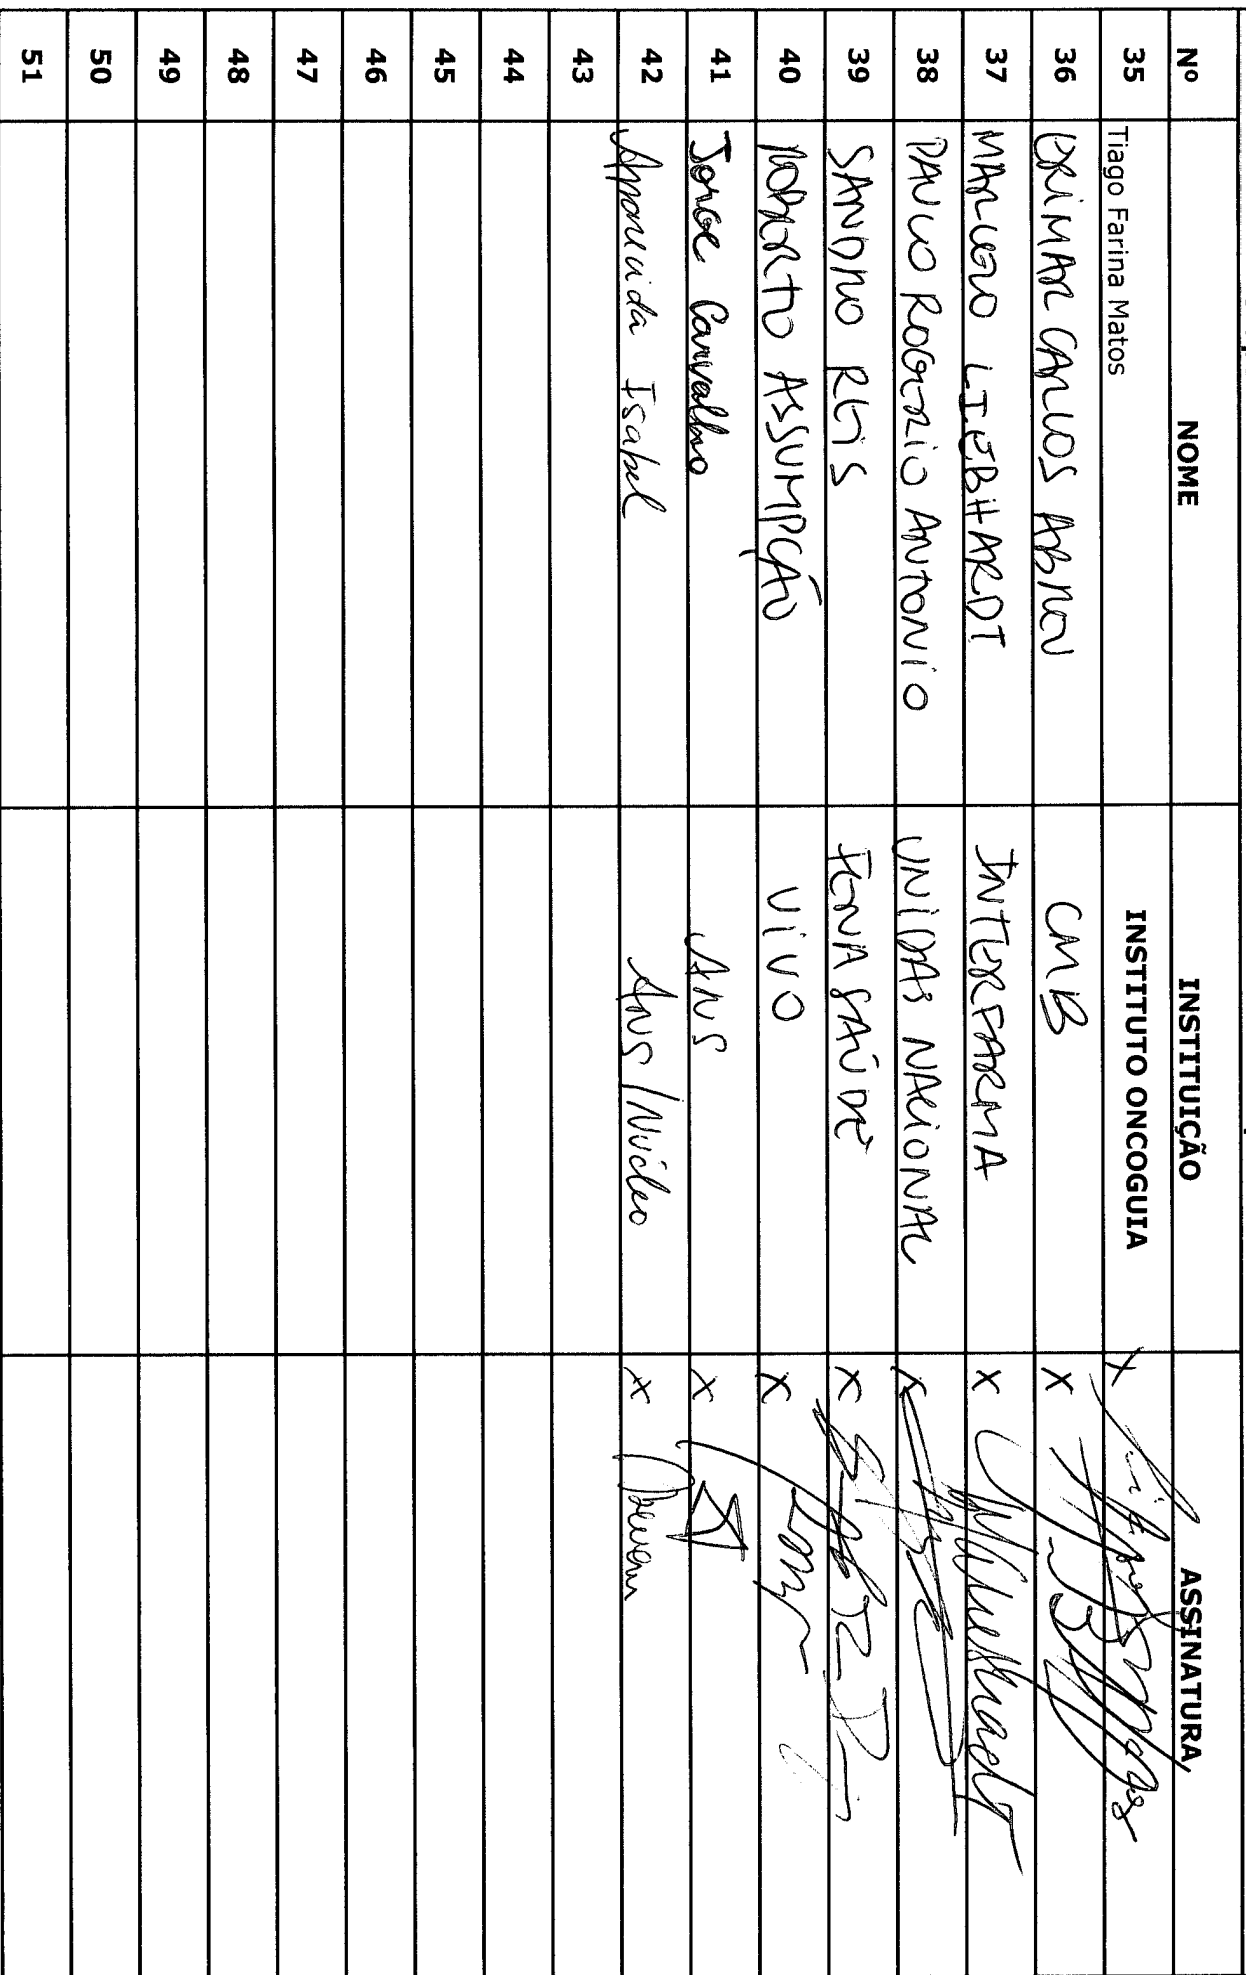 Nº NOME INSTITUIÇÃO ASSINATURA
35 Tiago Farina Matos INSTITUTO ONCOGUIA x
36 BRIMAR CARLOS ABREU CMB x
37 MARCELO LIEBHARDT INTERFARMA x
38 PAULO ROGÉRIO ANTONIO UNIDAS NACIONAL x
39 SANDRO REIS FENASAÚDE x
40 ROBERTO ASSUMPÇÃO VIVO x
41 Jorge Carvalho ANS x
42 Apparecida Isabel ANS/Núcleo x
43
44
45
46
47
48
49
50
51